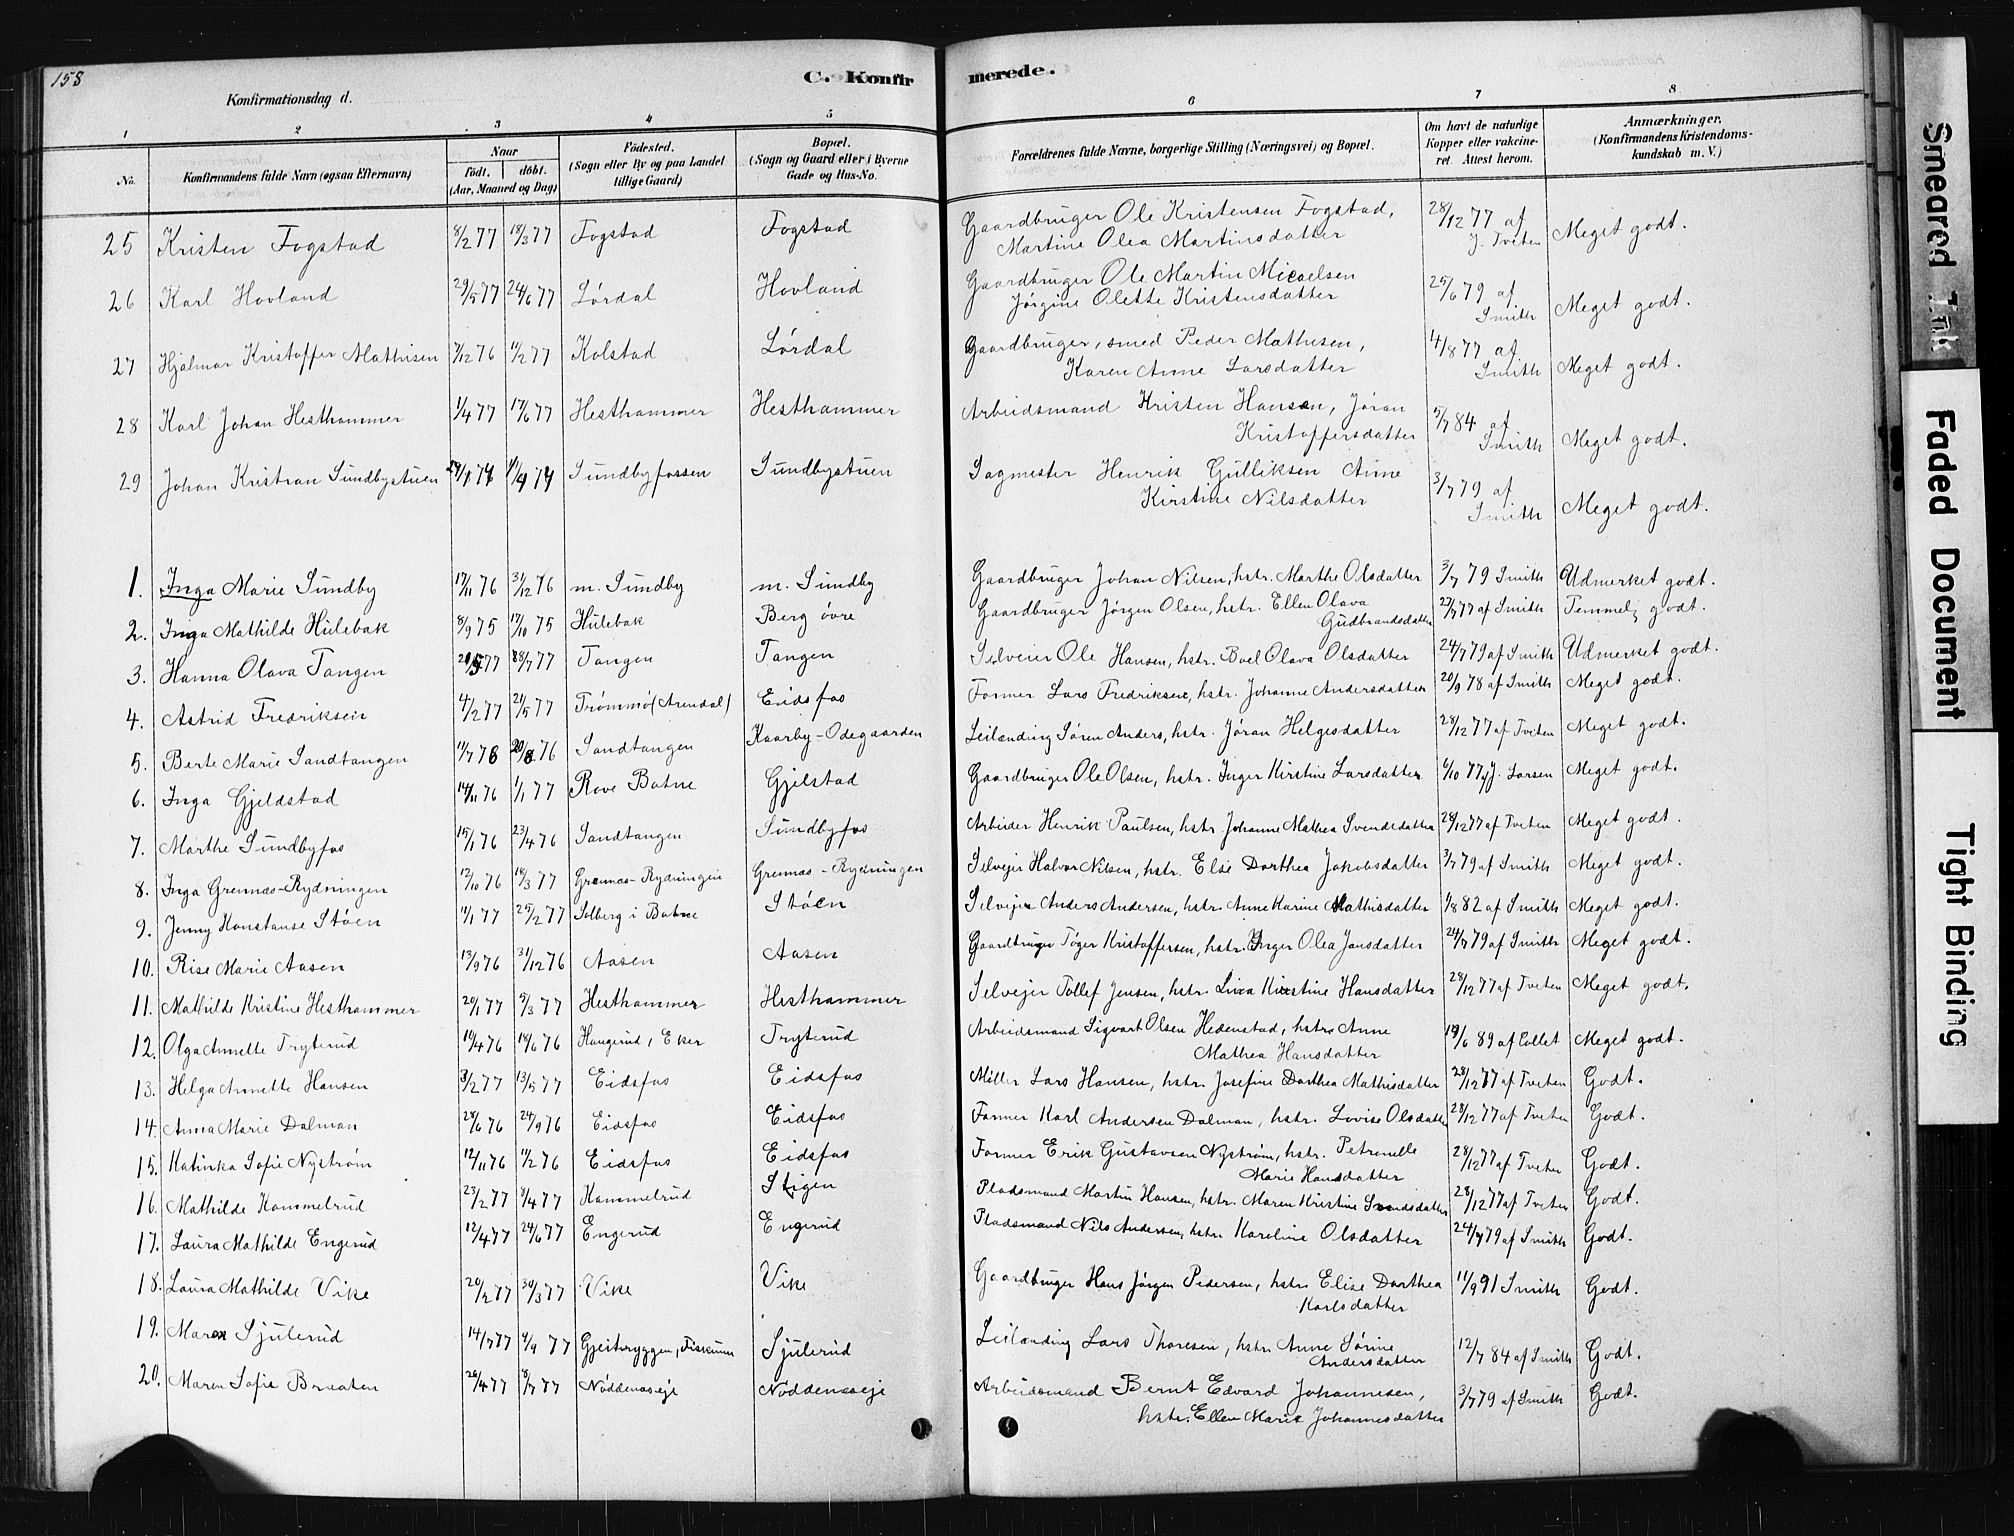 158
C. Konfirmerede.
Konfirmationsdag d.
1 2 3 4 5 6 7 8
No. Konfirmandens fulde Navn (ogsaa Efternavn) Naar Født. døbt. (Aar, Maaned og Dag) Fødested. (Sogn eller By og paa Landet tillige Gaard) Bopæl. (Sogn og Gaard eller i Byerne Gade og Hus-No. Forældrenes fulde Navne, borgerlige Stilling (Næringsvei) og Bopæl. Om havt de naturlige Kopper eller vakcineret. Attest herom. Anmærkninger. (Konfirmandens Kristendomskundskab m. V.)
25 Kristen Fogstad 8/2 77 18/3 77 Fogstad Fogstad Gaardbruger Ole Kristensen Fogstad, Martine Olea Martinsdatter 28/12 77 af J. Tveten Meget godt.
26 Karl Hovland 29/5 77 24/6 77 Lørdal Hovland Gaardbruger Ole Martin Micaelsen Jørgine Olette Kristensdatter 25/6 79 af Smith Meget godt.
27 Hjalmar Kristoffer Mathisen 7/12 76 11/2 77 Kolstad Lørdal Gaardbruger, smed Peder Mathisen, Karen Anne Larsdatter 4/8 77 af Smith Meget godt.
28 Karl Johan Hesthammer 1/4 77 17/6 77 Hesthammer Hesthammer Arbeidsmand Kristen Hansen, Jøran Kristoffersdatter 5/7 84 af Smith Meget godt.
29 Johan Kristian Sundbystuen 74 74 Sundbyfossen Sundbystuen Sagmester Henrik Gulliksen Anne Kirstine Nilsdatter 3/7 79 af Smith Meget godt.
1. Inga Marie Sundby 17/11 76 31/12 76 m. Sundby m. Sundby Gaardbruger Johan Nilsen, hstr. Marthe Olsdatter 3/7 79 Smith Udmerket godt.
2. Inga Mathilde Hulebak 8/9 75 17/10 75 Hulebak Berg øvre Gaardbruger Jørgen Olsen, hstr. Ellen Olava Gudbrandsdatter 27/7 77 af Smith Temmelig godt.
3. Hanna Olava Tangen 77 77 Tangen Tangen Selveier Ole Hansen, hstr. Boel Olava Olsdatter 24/7 79 af Smith Udmerket godt.
4. Astrid Fredriksen 4/2 77 21/5 77 Trømmø (Arendal) Eidsfos Former Lars Fredriksen, hstr. Johanne Andersdatter 20/9 78 af Smith Meget godt.
5. Berte Marie Sandtangen 11/7 76 20/8 76 Sandtangen Kaarby-Ødegaarden Leilænding Søren Anders, hstr. Jøran Helgesdatter 28/12 77 af Tveten Meget godt.
6. Inga Gjeldstad 14/11 76 1/1 77 Rove Botne Gjelstad Gaardbruger Ole Olsen, hstr. Inger Kirstine Larsdatter 6/10 77 J. Larsen Meget godt.
7. Marthe Sundbyfos 15/1 76 23/4 76 Sandtangen Sundbyfos Arbeider Henrik Paulsen, hstr. Johanne Mathea Svendsdatter 28/12 77 af Tveten Meget godt.
8. Inga Grennæs-Rydningen 12/10 76 18/3 77 Grennæs-Rydningen Grennæs-Rydningen Selvejer Halvor Nilsen, hstr. Else Dorthea Jakobsdatter 3/7 79 af Smith Meget godt.
9. Jenny Konstanse Støen 11/1 77 25/2 77 Solberg i Botne Støen Selvejer Anders Andersen, hstr. Anne Karine Mathisdatter 1/8 82 af Smith Meget godt.
10. Rise Marie Aasen 13/9 76 31/12 76 Aasen Aasen Gaardbruger Tøger Kristoffersen, hstr. Inger Olea Jansdatter 24/7 79 af Smith Meget godt.
11. Mathilde Kristine Hesthammer 20/1 77 5/3 77 Hesthammer Hesthammer Selvejer Tollef Jensen, hstr. Lina Kirstine Hansdatter 28/12 77 af Tveten Meget godt.
12. Olga Annette Tryterud 10/4 76 18/6 76 Haugerud, Eker Tryterud Arbeidsmand Sigvart Olsen Hedenstad, hstr. Anne Mathea Hansdatter 19/6 89 af Collet Meget godt.
13. Helga Annette Hansen 3/2 77 13/5 77 Eidsfos Eidsfos Møller Lars Hansen, hstr. Josefine Dorthea Mathisdatter 28/12 77 af Tveten Godt.
14. Anna Marie Dalman 28/6 76 24/9 76 Eidsfos Eidsfos Former Karl Andersen Dalman, hstr. Lovise Olsdatter 28/12 77 af Tveten Godt.
15. Katinka Sofie Nystrøm 12/11 76 11/2 76 Eidsfos Eidsfos Former Erik Gustavsen Nystrøm, hstr. Petrenelle Marie Hansdatter 28/12 77 af Tveten Godt.
16. Mathilde Kammelrud 23/2 77 8/4 77 Kammelrud Stigen Pladsmand Martin Hansen, hstr. Maren Kristine Svendsdatter 28/12 77 af Tveten Godt.
17. Laura Mathilde Engerud 12/4 77 24/6 77 Engerud Engerud Pladsmand Nils Andersen, hstr. Karoline Olsdatter 24/7 79 af Smith Godt.
18. Laura Mathilde Vike 20/2 77 30/3 77 Vike Vike Gaardbruger Hans Jørgen Pedersen, hstr. Elise Dorthea Karlsdatter 11/9 91 Smith Godt.
19. Maren Sjulerud 14/7 77 9/9 77 Gjeiteryggen, Fiskum Sjulerud Leilænding Lars Thoresen, hstr. Anne Sørine Andersdatter 12/7 84 af Smith Godt.
20. Maren Sofie Braaten 26/4 77 8/7 77 Nøddenseje Nøddenseje Arbeidsmand Bernt Edvard Johannesen, hstr. Ellen Marie Johannesdatter 3/7 79 af Smith Godt.
Smeared Ink
Faded Document
Tight Binding